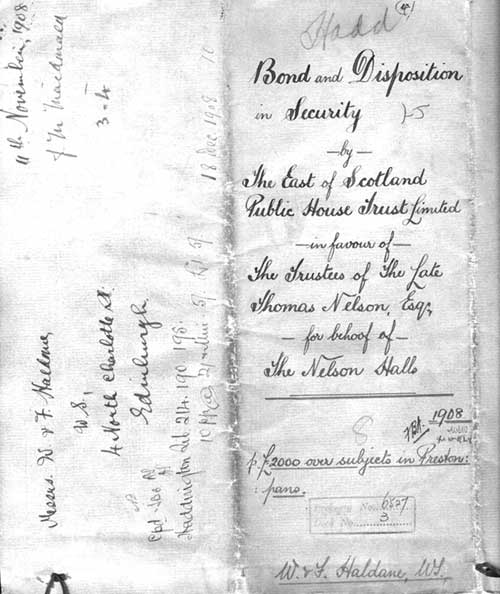 Hadd
Bond and Disposition
in Security
—by—
The East of Scotland
Public House Trust Limited
—in favour of—
The Trustees of The Late
Thomas Nelson, Esq,
— for behoof of —
The Nelson Halls
1908
8
p £2000 over subjects in Preston:
: pans.
No. 6527
No. 3
W. & F. Haldane, W.S.
11th November, 1908
J M Macdonald
3-4
18 Dec 1908
Messrs. W & F. Haldane,
W.S,
4 North Charlotte St.
Edinburgh
Haddington